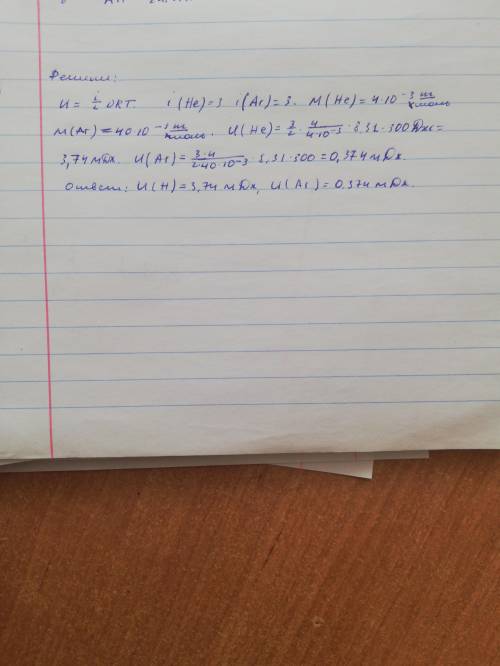 Решили:
U = i/2 υRT. i(He)=3 i(Ar)=3. M(He)=4·10⁻³ кг/кмоль
M(Ar)=40·10⁻³ кг/кмоль. U(He)=3/2·4/4·10⁻³·8,31·300Дж=
3,74 мДж. U(Ar)=3·4/2·40·10⁻³·8,31·300=0,374 мДж.
Ответ: U(H)=3,74 мДж, U(Ar)=0,374 мДж.